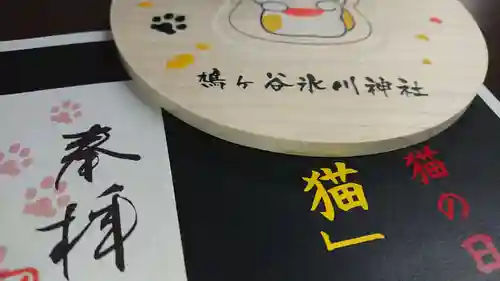 鳩ヶ谷氷川神社
奉拝
猫」
猫の日